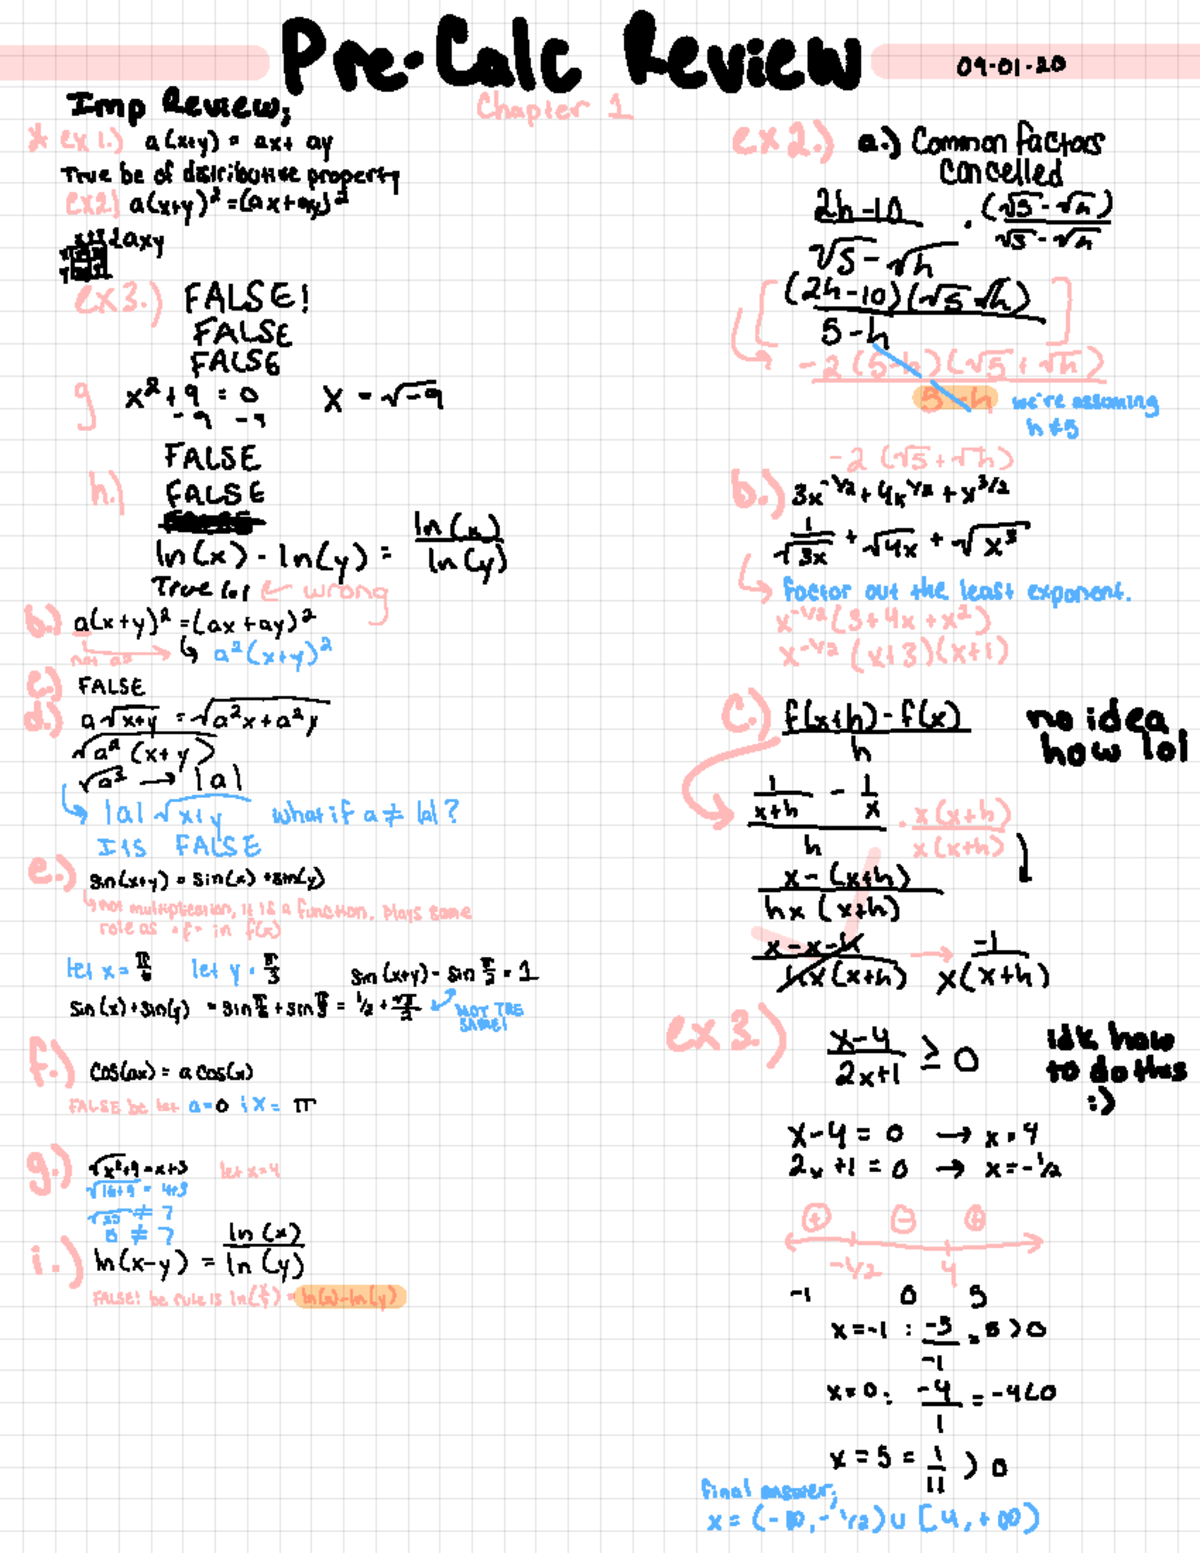 Pre-Calc Review
09-01-20
Chapter 1
Imp Review;
* ex 1.) a(x+y) = ax + ay
True bc of distributive property
ex2) a(x+y)² = (ax + ay)²
2axy
ex3.) FALSE!
FALSE
FALSE
g x² + 9 = 0 x = √-9
-9 -9
FALSE
h.) FALSE
ln(x) - ln(y) = ln(x)/ln(y)
True lol ← wrong
b.) a(x+y)² = (ax + ay)²
↳ a²(x+y)²
c.) FALSE
d.) a√x+y = √a²x + a²y
√a²(x+y)
√a² → |a|
↳ |a|√x+y what if a ≠ |a|?
It is FALSE
e.) sin(x+y) = sin(x) + sin(y)
↳ not multiplication, it is a function. Plays same
role as "f" in f(x)
let x = π/6 let y = π/3 sin(x+y) = sin π/2 = 1
sin(x) + sin(y) = sin π/6 + sin π/3 = 1/2 + √3/2 NOT THE
SAME!
f.) cos(ax) = a cos(x)
FALSE bc let a = 0 ; x = π
g.) √x²+9 = x+3 let x = 4
√16+9 = 4+3
√25 ≠ 7
5 ≠ 7
i.) ln(x-y) = ln(x)/ln(y)
FALSE! bc rule is ln(x/y) = ln(x) - ln(y)
ex 2.) a.) Common factors
cancelled
2h-10/√5-√h · (√5-√h)/√5-√h
[(2h-10)(√5 √h)/5-h]
-2(5-h)(√5+√h)/5-h we're assuming
h ≠ 5
-2(√5+√h)
b.) 3x^-1/2 + 4x^1/2 + x^3/2
1/√3x + √4x + √x³
↳ factor out the least exponent.
x^-1/2 (3 + 4x + x²)
x^-1/2 (x+3)(x+1)
c.) f(x+h) - f(x)/h no idea
how lol
1/x+h - 1/x / h · x(x+h)/x(x+h)
x-(x+h)/hx(x+h)
x-x-h/hx(x+h) → -1/x(x+h)
ex 3.) x-4/2x+1 ≥ 0 idk how
to do this
:)
x-4 = 0 → x = 4
2x+1 = 0 → x = -1/2
+ - +
-1/2 4
-1 0 5
x = -1 : -5/-1 = 5 > 0
x = 0 : -4/1 = -4 < 0
x = 5 = 1/11 > 0
final answer;
x = (-∞, -1/2) ∪ [4, +∞)